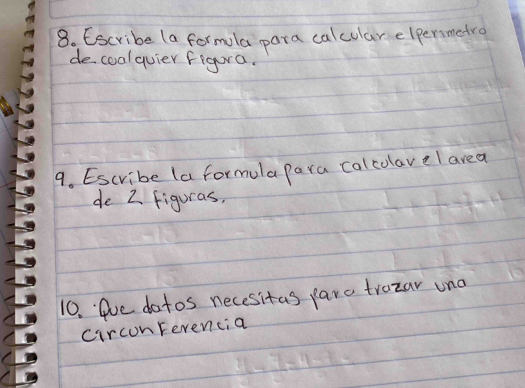 8. Escribe la formula para calcular el perimetro
de coalquier figura.
9. Escribe la formula para calcular el area
de 2 figuras.
10. Que datos necesitas para trazar una
circonferencia